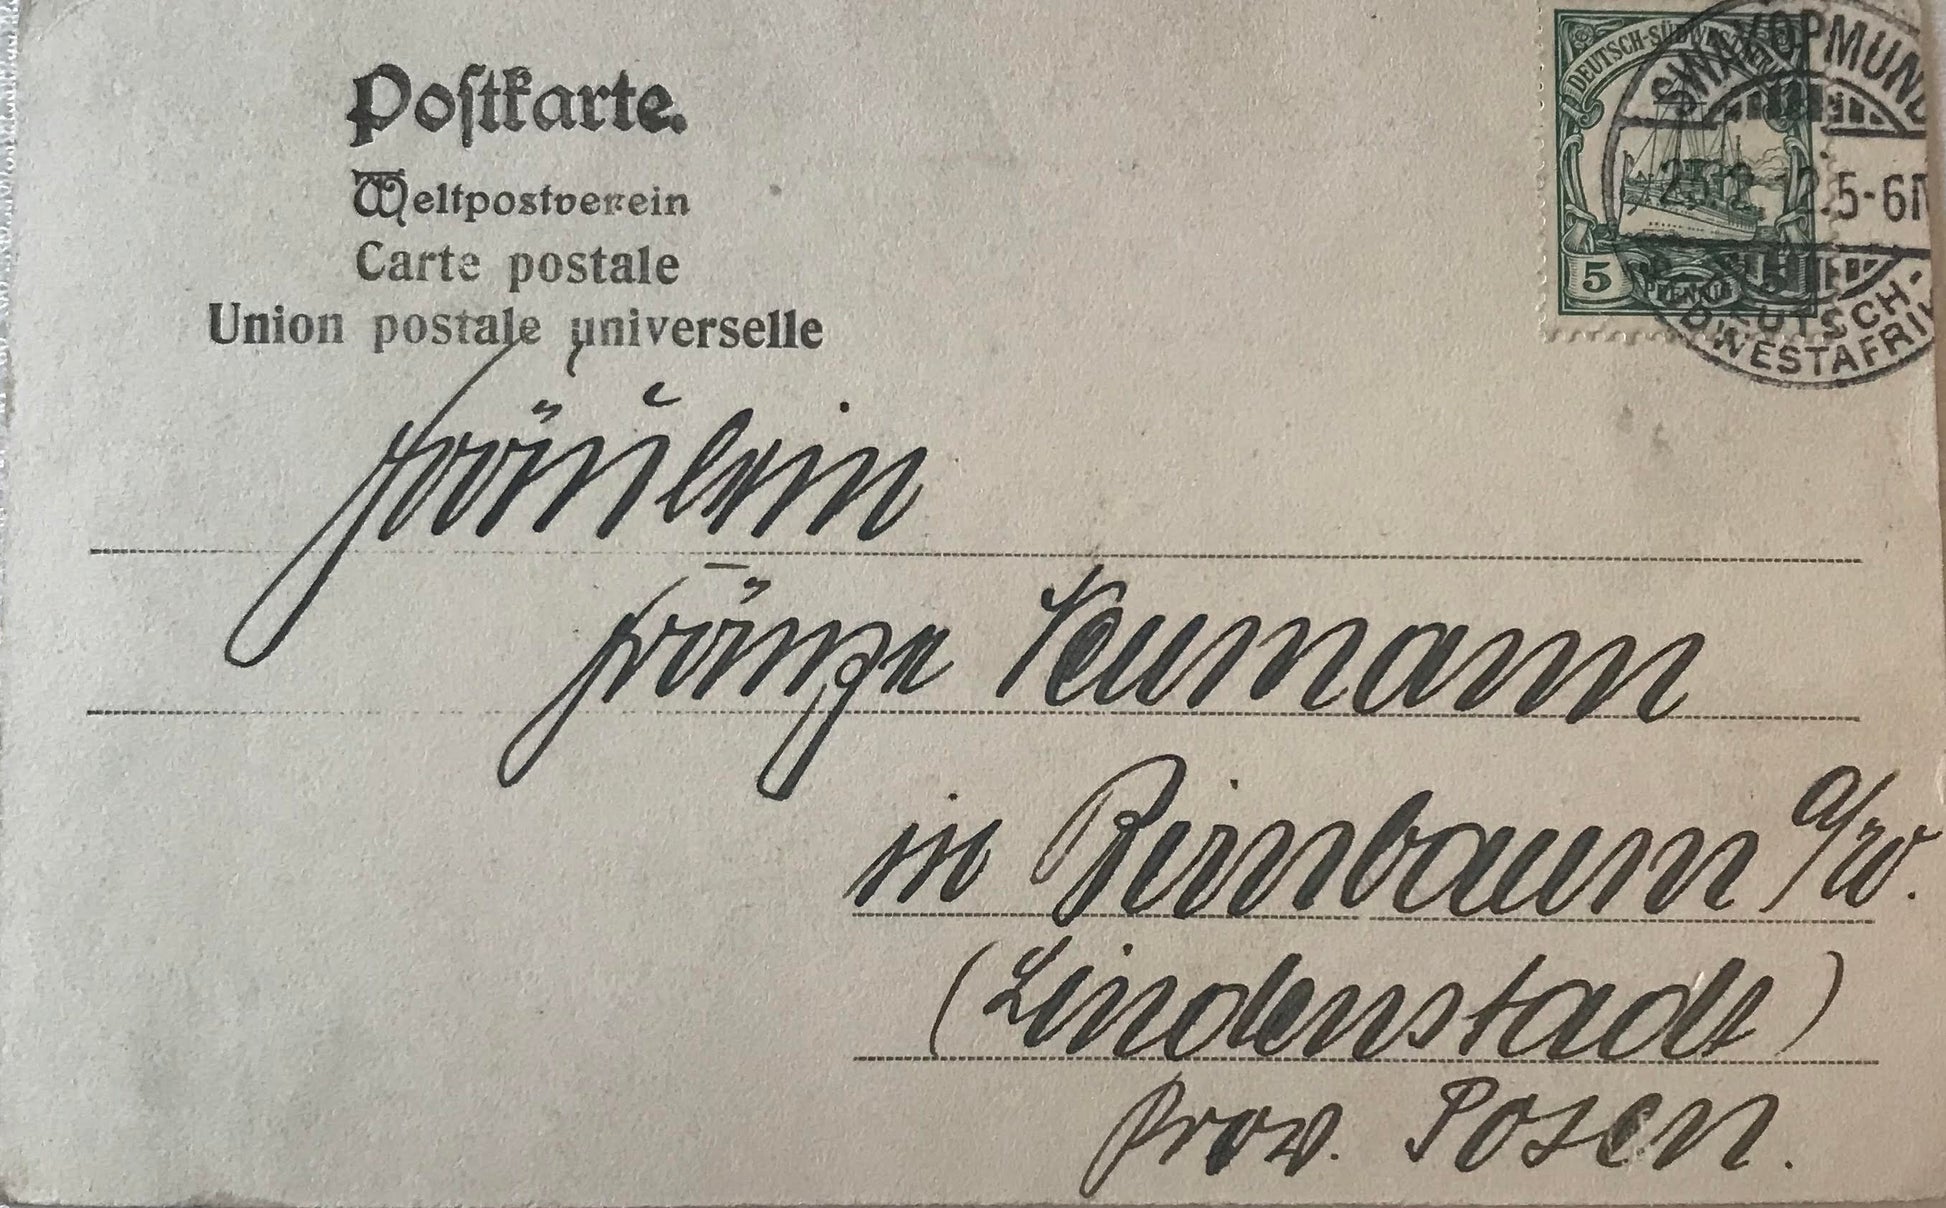 Postkarte.
Weltpostverein
Carte postale
Union postale universelle
DEUTSCH-SÜDWEST
5 PFENNIG 5
SWAKOPMUND
12.5-6N
DEUTSCH-
SÜDWESTAFRIKA
Fräulein
Fränze Neumann
in Birnbaum a/W.
(Lindenstadt)
Prov. Posen.